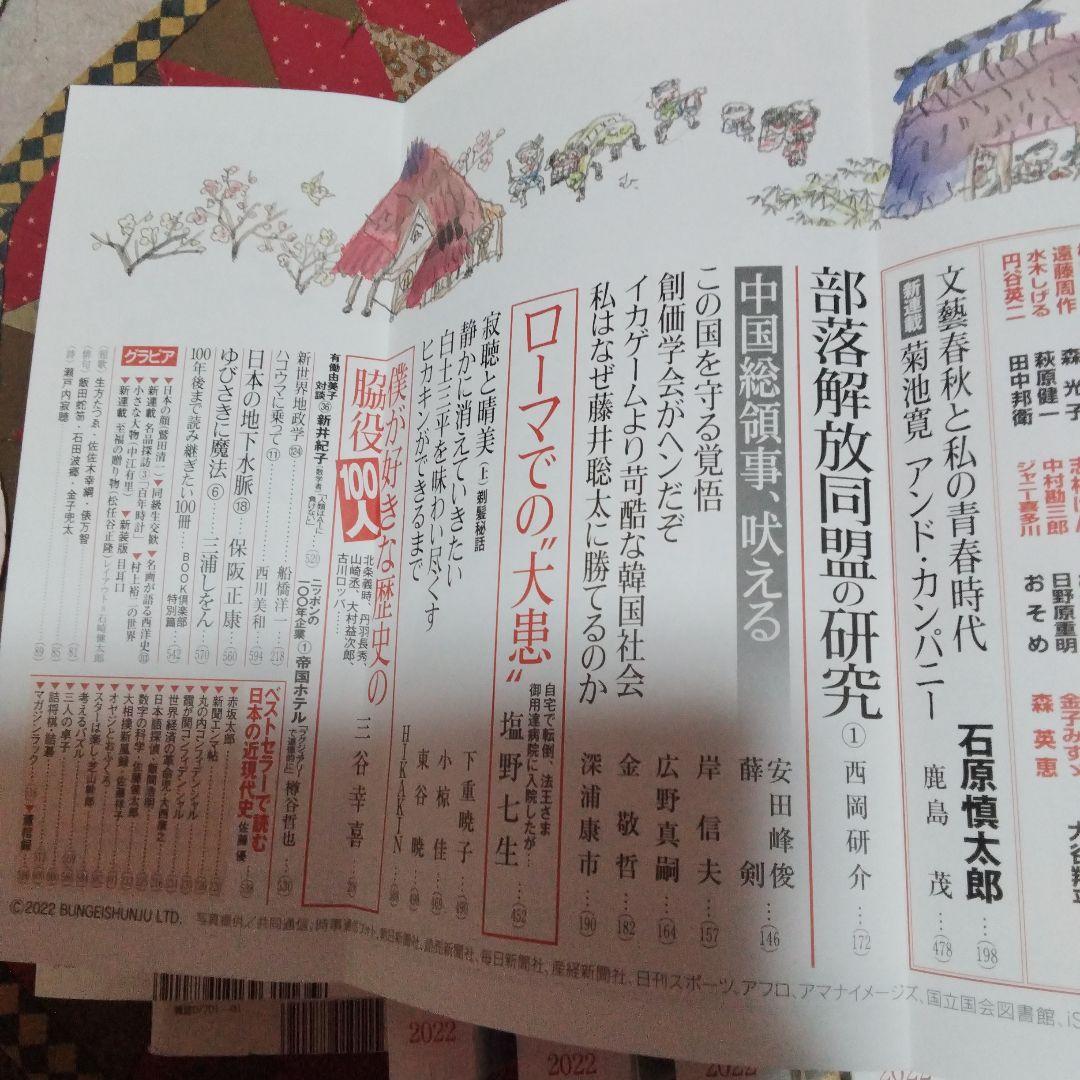 遠藤周作
水木しげる
円谷英二
森光子
萩原健一
田中邦衛
中村勘三郎
ジャニー喜多川
日野原重明
おそめ
金子みすゞ
森英恵
文藝春秋と私の青春時代 石原慎太郎 198
新連載 菊池寛 アンド・カンパニー 鹿島茂 478
部落解放同盟の研究 ① 西岡研介 172
中国総領事、吠える 安田峰俊 薛剣 146
この国を守る覚悟 岸信夫 157
創価学会がヘンだぞ 広野真嗣 164
イカゲームより苛酷な韓国社会 金敬哲 182
私はなぜ藤井聡太に勝てるのか 深浦康市 190
ローマでの“大患” 自宅で転倒、法王さま御用達病院に入院したが… 塩野七生 452
寂聴と晴美(上)剃髪秘話 下重暁子
静かに消えていきたい 小椋佳
白土三平を味わい尽くす 東谷暁
ヒカキンができるまで HIKAKIN
僕が好きな歴史の脇役100人 北条義時、丹羽長秀、山崎丞、大村益次郎、古川ロッパ… 三谷幸喜
有働由美子対談㊱ 新井紀子 数学者「人類はAIに負けない」 520
ニッポンの一〇〇年企業① 帝国ホテル 樽谷哲也 530
新世界地政学 124 船橋洋一 218
ハコウマに乗って⑪ 西川美和 594
日本の地下水脈⑱ 保阪正康 560
ゆびさきに魔法⑥ 三浦しをん 570
100年後まで読み継ぎたい100冊 BOOK倶楽部特別篇 542
グラビア
▼日本の顔(鷲田清一)▼同級生交歓▼名画が語る西洋史
▼新連載 名品探訪③「百年時計」▼村上裕二の世界
▼小さな大物(中江有里)▼新装版 目耳口
▼新連載 至福の贈り物(松任谷正隆)
(短歌)生方たつゑ・佐佐木幸綱・俵万智
(俳句)飯田蛇笏・石田波郷・金子兜太
(詩)瀬戸内寂聴
ベストセラーで読む日本の近現代史 佐藤優
▼赤坂太郎
▼新聞エンマ帖
▼丸の内コンフィデンシャル
▼霞が関コンフィデンシャル
▼世界経済の革命児・大西康之
▼日本語探偵・飯間浩明
▼数字の科学・佐藤健太郎
▼大相撲新風録・佐藤祥子
▼オヤジとおふくろ
▼スターは楽し・芝山幹郎
▼考えるパズル
▼三人の卓子
▼詰将棋・詰碁
▼マガジンラック
©2022 BUNGEISHUNJU LTD.
写真提供/共同通信、時事通信フォト、朝日新聞社、読売新聞社、毎日新聞社、産経新聞社、日刊スポーツ、アフロ、アマナイメージズ、国立国会図書館、iS
2022
2022
2022
2022